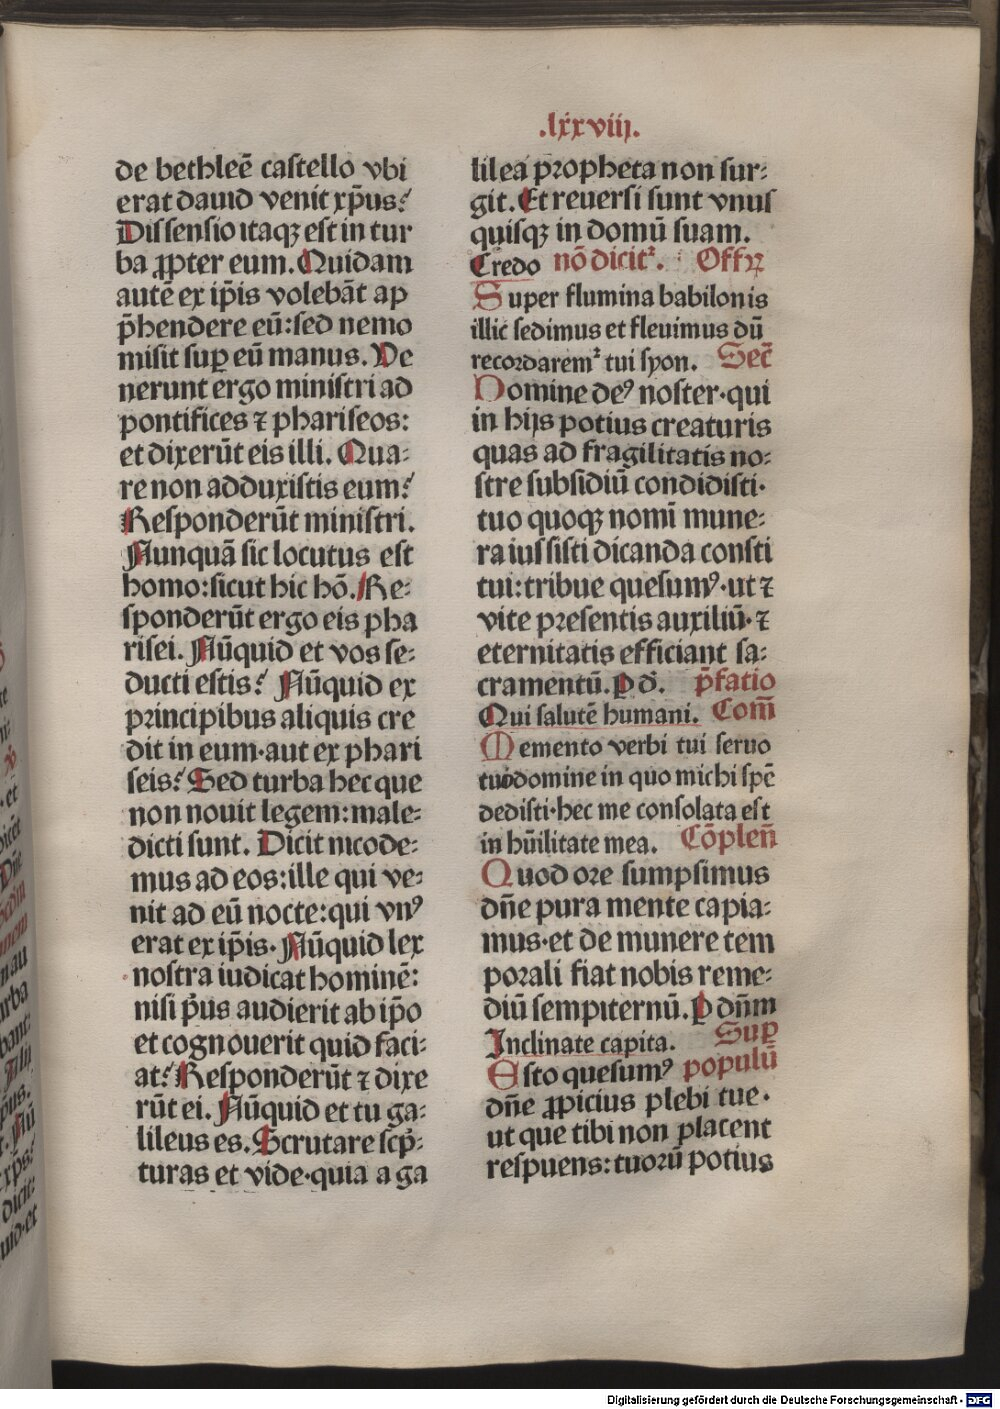 .lxxviij.
de bethleē castello vbi
erat dauid venit xp̄us?
Dissensio itaqꝫ est in tur
ba ꝓpter eum. Quidam
autē ex ip̄is volebāt ap
p̄hendere eū: sed nemo
misit suꝑ eū manus. Ve
nerunt ergo ministri ad
pontifices ⁊ phariseos:
et dixerūt eis illi. Qua-
re non adduxistis eum?
Responderūt ministri.
Nunquā sic locutus est
homo: sicut hic hō. Re-
sponderūt ergo eis pha
risei. Nūquid et vos se-
ducti estis? Nūquid ex
principibus aliquis cre
dit in eum·aut ex phari
seis? Sed turba hec que
non nouit legem: male-
dicti sunt. Dicit nicode-
mus ad eos: ille qui ve-
nit ad eū nocte: qui vnꝰ
erat ex ip̄is· Nūquid lex
nostra iudicat hominē:
nisi p̄us audierit ab ip̄o
et cognouerit quid faci-
at? Responderūt ⁊ dixe
rūt ei. Nūquid et tu ga-
lileus es. Scrutare scp̄-
turas et vide·quia a ga
lilea propheta non sur-
git. Et reuersi sunt vnus
quisqꝫ in domū suam.
Credo nō dicit᷒. Offꝝ
Super flumina babilonis
illic sedimus et fleuimus dū
recordarem᷒ tui syon. Secr̄
Domine deꝰ noster·qui
in hijs potius creaturis
quas ad fragilitatis no-
stre subsidiū condidisti·
tuo quoqꝫ nomī mune-
ra iussisti dicanda consti
tui: tribue quesumꝰ·ut ⁊
vite presentis auxiliū·⁊
eternitatis efficiant sa-
cramentū. P d̄. p̄fatio
Qui salutē humani. Com̄
Memento verbi tui seruo
tuo domine in quo michi spē
dedisti·hec me consolata est
in hūilitate mea. Cōplen̄
Quod ore sumpsimus
dn̄e pura mente capia-
mus·et de munere tem
porali fiat nobis reme-
diū sempiternū. P dn̄m
Inclinate capita. Suꝑ
Esto quesumꝰ populū
dn̄e ꝓpicius plebi tue·
ut que tibi non placent
respuens: tuorū potius
Digitalisierung gefördert durch die Deutsche Forschungsgemeinschaft - DFG